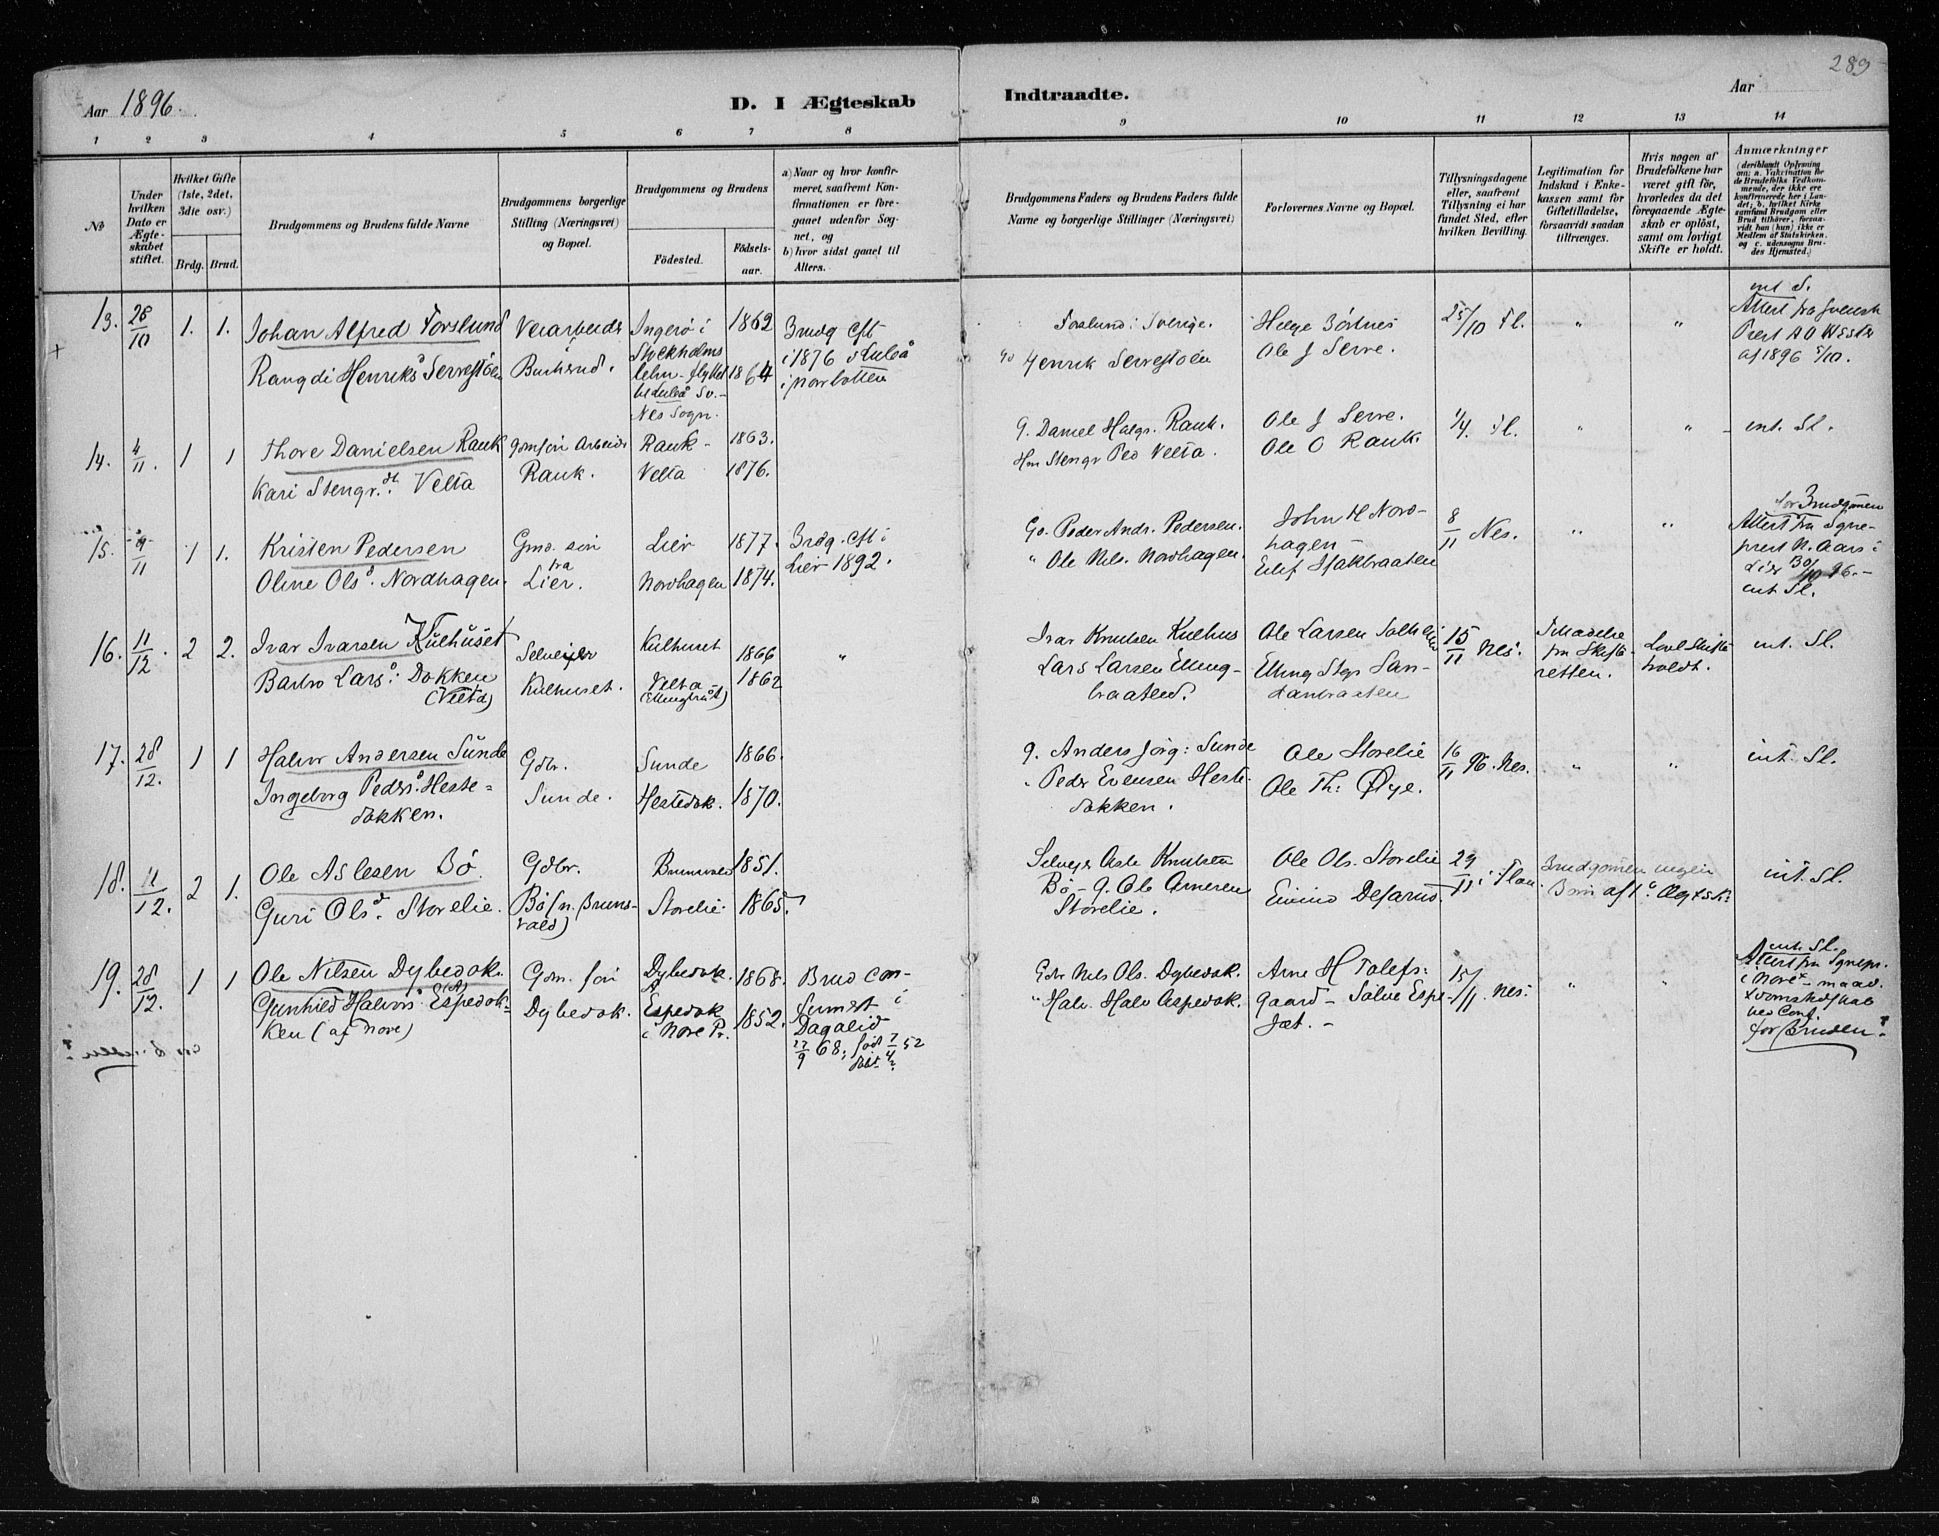 289
Aar 1896.
D. I Ægteskab Indtraadte.
Aar
1 2 3 4 5 6 7 8 9 10 11 12 13 14
№
Under hvilken Dato er Ægteskabet stiftet.
Hvilket Gifte (1ste, 2det, 3die osv.)
Brdg. Brud.
Brudgommens og Brudens fulde Navne
Brudgommens borgerlige Stilling (Næringsvei) og Bopæl.
Brudgommens og Brudens
Fødested. Fødselsaar.
a) Naar og hvor konfirmeret, saafremt Konfirmationen er foregaaet udenfor Sognet, og
b) hvor sidst gaaet til Alters.
Brudgommens Faders og Brudens Faders fulde Navne og borgerlige Stillinger (Næringsvei)
Forlovernes Navne og Bopæl.
Tillysningsdagene eller, saafremt Tillysning ei har fundet Sted, efter hvilken Bevilling.
Legitimation for Indskud i Enkekassen samt for Giftetilladelse, forsaavidt saadan tiltrænges.
Hvis nogen af Brudefolkene har været gift før, hvorledes da det foregaaende Ægteskab er opløst, samt om lovligt Skifte er holdt.
Anmærkninger
(deriblandt Oplysning om: a. Vakcination for de Brudefolks Vedkommende, der ikke ere konfirmerede her i Landet; b. hvilket Kirkesamfund Brudgom eller Brud tilhører, forsaavidt han (hun) ikke er Medlem af Statskirken. og c. udensogns Brudes Hjemsted.)
13. 28/10 1. 1. Johan Alfred Forslund
Rangdi Henriks Serrestöen
Buskerud.
Ingerö i Stockholms lehn - flyttet til Luleå Sv. -
Nes Sogn.
1862
1864
Brudg Cft i 1876 i Luleå i Norrbotten
Forslund i Sverige.
Henrik Serrestöen
Helge Börtnes
Ole J Serre.
25/10 Fl. " "
int S.
Attest fra Svensk Prest
af 1896 /10.
14. 4/11. 1 1 Thore Danielsen Rauk
Kari Stengr. dt. Velta
Rauk.
Rauk - 1863.
Velta 1876.
G. Daniel Halgr. Rauk.
Hm Stengr Ped Velta.
Ole J Serre.
Ole O Rauk.
Fl. " "
int. Sl.
15. 9/11 1 1. Kristen Pedersen
Oline Ols d. Nordhagen.
Gmd. sön fra Lier.
Lier 1877.
Nordhagen 1874.
Brdg. cft i Lier 1892.
Go. Peder Andr. Pedersen.
" Ole Nils. Nordhagen.
John H Nordhagen -
8/11 Nes. " "
for Brudgomen
Attest fra Sgneprest N. Aars i Lier 30/10 96. -
int. Sl.
16. 11/12. 2 2. Ivar Ivarsen Kulhuset
Barbro Lars d. Dokken
(Velta)
Selveier
Kulhuset.
Kulhuset 1866
Velta - 1862
"
Ivar Knutsen Kulhus
Lars Larsen Ellingbraaten.
Ole Larsen
Elling Stgr
15/11 Nes.
Tilladelse fra Skifteretten.
Lovl Skifte holdt.
int. Sl.
17. 28/12. 1 1 Halvor Andersen Sunde
Ingeborg Peders d. Hestedokken.
Gdbr.
Sunde.
Sunde 1866.
Hestedok. 1870.
g. Anders Jörg: Sunde
" Peder Evensen Hestedokken.
Ole Storelie
Ole Th: Øye.
16/11 96. Nes. " "
int. Sl.
18. 11/12. 2 1. Ole Aslesen Bö.
Guri Ols d. Storelie.
Gdbr.
Bö (n. Brunsvald)
1851.
Storelie 1865.
Selveyer Asle Knutsen
Bö - g. Ole Arnesen
Storelie.
Ole Ols. Storelie
29/11 i Flaa.
Brudgomen ingen Börn af 1 o Ægtesk:
int. Sl.
19. 28/12. 1 1 Ole Nilsen Dybedok.
Gunhild Halvors d. Espedokken (af Nore)
Gdm. sön
Dybedok.
Dybedok. 1868.
Espedok i Nore Pr. 1852.
Brud Confirmet i Dagalid 27/9 68; född 7/4 52
Gdbr Nels Ols. Dybedok.
" Halv. Halv Aspedok.
Arne H Tolefsgaard -
15/11 Nes. " "
int. Sl.
Attest fra Sgnepr. i Nore
ved Conf.
for Bruden.